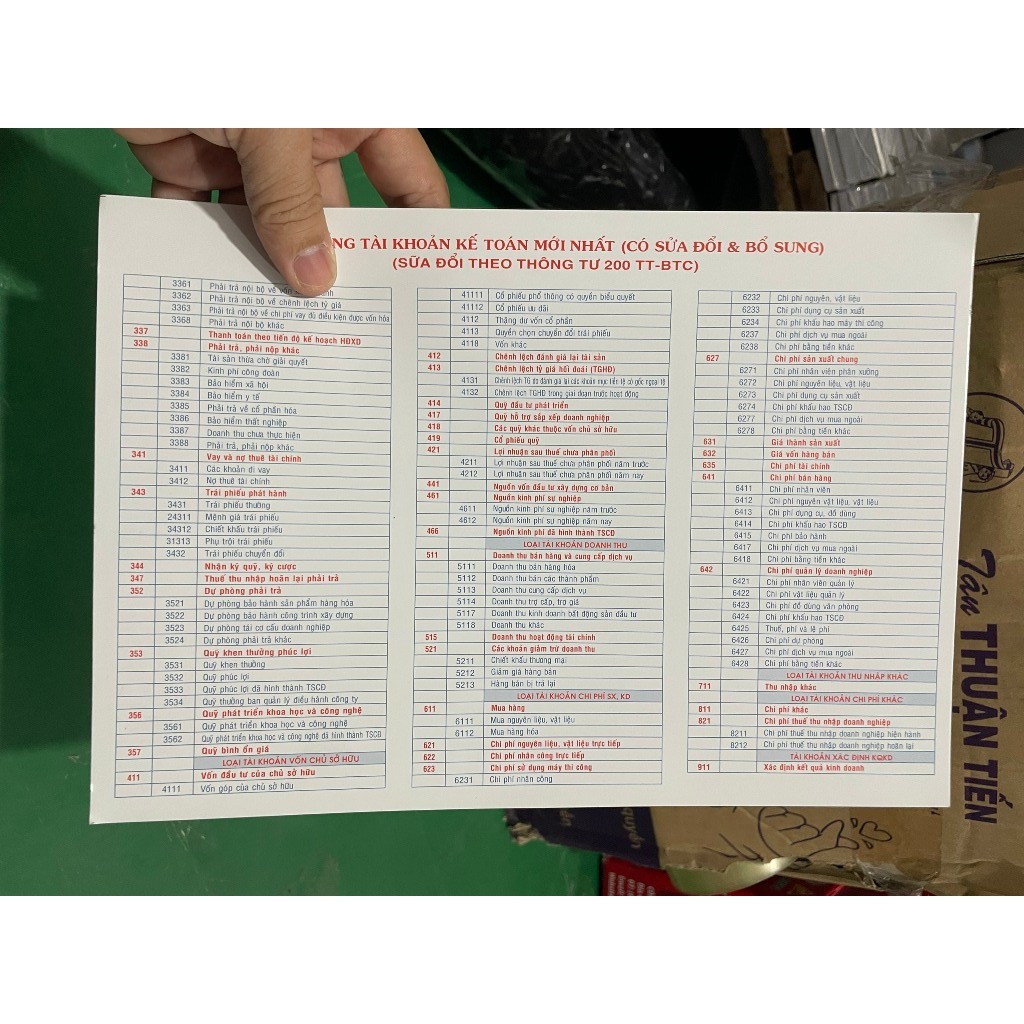 NG TÀI KHOẢN KẾ TOÁN MỚI NHẤT (CÓ SỬA ĐỔI & BỔ SUNG)
(SỮA ĐỔI THEO THÔNG TƯ 200 TT-BTC)
3361 Phải trả nội bộ về vốn
3362 Phải trả nội bộ về chênh lệch tỷ giá
3363 Phải trả nội bộ về chi phí vay đủ điều kiện được vốn hóa
3368 Phải trả nội bộ khác
337 Thanh toán theo tiến độ kế hoạch HĐXD
338 Phải trả, phải nộp khác
3381 Tài sản thừa chờ giải quyết
3382 Kinh phí công đoàn
3383 Bảo hiểm xã hội
3384 Bảo hiểm y tế
3385 Phải trả về cổ phần hóa
3386 Bảo hiểm thất nghiệp
3387 Doanh thu chưa thực hiện
3388 Phải trả, phải nộp khác
341 Vay và nợ thuê tài chính
3411 Các khoản đi vay
3412 Nợ thuê tài chính
343 Trái phiếu phát hành
3431 Trái phiếu thường
24311 Mệnh giá trái phiếu
34312 Chiết khấu trái phiếu
31313 Phụ trội trái phiếu
3432 Trái phiếu chuyển đổi
344 Nhận ký quỹ, ký cược
347 Thuế thu nhập hoãn lại phải trả
352 Dự phòng phải trả
3521 Dự phòng bảo hành sản phẩm hàng hóa
3522 Dự phòng bảo hành công trình xây dựng
3523 Dự phòng tái cơ cấu doanh nghiệp
3524 Dự phòng phải trả khác
353 Quỹ khen thưởng phúc lợi
3531 Quỹ khen thưởng
3532 Quỹ phúc lợi
3533 Quỹ phúc lợi đã hình thành TSCĐ
3534 Quỹ thưởng ban quản lý điều hành công ty
356 Quỹ phát triển khoa học và công nghệ
3561 Quỹ phát triển khoa học và công nghệ
3562 Quỹ phát triển khoa học và công nghệ đã hình thành TSCĐ
357 Quỹ bình ổn giá
LOẠI TÀI KHOẢN VỐN CHỦ SỞ HỮU
411 Vốn đầu tư của chủ sở hữu
4111 Vốn góp của chủ sở hữu
41111 Cổ phiếu phổ thông có quyền biểu quyết
41112 Cổ phiếu ưu đãi
4112 Thặng dư vốn cổ phần
4113 Quyền chọn chuyển đổi trái phiếu
4118 Vốn khác
412 Chênh lệch đánh giá lại tài sản
413 Chênh lệch tỷ giá hối đoái (TGHĐ)
4131 Chênh lệch TG do đánh giá lại các khoản mục tiền tệ có gốc ngoại tệ
4132 Chênh lệch TGHĐ trong giai đoạn trước hoạt động
414 Quỹ đầu tư phát triển
417 Quỹ hỗ trợ sắp xếp doanh nghiệp
418 Các quỹ khác thuộc vốn chủ sở hữu
419 Cổ phiếu quỹ
421 Lợi nhuận sau thuế chưa phân phối
4211 Lợi nhuận sau thuế chưa phân phối năm trước
4212 Lợi nhuận sau thuế chưa phân phối năm nay
441 Nguồn vốn đầu tư xây dựng cơ bản
461 Nguồn kinh phí sự nghiệp
4611 Nguồn kinh phí sự nghiệp năm trước
4612 Nguồn kinh phí sự nghiệp năm nay
466 Nguồn kinh phí đã hình thành TSCĐ
LOẠI TÀI KHOẢN DOANH THU
511 Doanh thu bán hàng và cung cấp dịch vụ
5111 Doanh thu bán hàng hóa
5112 Doanh thu bán các thành phẩm
5113 Doanh thu cung cấp dịch vụ
5114 Doanh thu trợ cấp, trợ giá
5117 Doanh thu kinh doanh bất động sản đầu tư
5118 Doanh thu khác
515 Doanh thu hoạt động tài chính
521 Các khoản giảm trừ doanh thu
5211 Chiết khấu thương mại
5212 Giảm giá hàng bán
5213 Hàng bán bị trả lại
LOẠI TÀI KHOẢN CHI PHÍ SX, KD
611 Mua hàng
6111 Mua nguyên liệu, vật liệu
6112 Mua hàng hóa
621 Chi phí nguyên liệu, vật liệu trực tiếp
622 Chi phí nhân công trực tiếp
623 Chi phí sử dụng máy thi công
6231 Chi phí nhân công
6232 Chi phí nguyên, vật liệu
6233 Chi phí dụng cụ sản xuất
6234 Chi phí khấu hao máy thi công
6237 Chi phí dịch vụ mua ngoài
6238 Chi phí bằng tiền khác
627 Chi phí sản xuất chung
6271 Chi phí nhân viên phân xưởng
6272 Chi phí nguyên liệu, vật liệu
6273 Chi phí dụng cụ sản xuất
6274 Chi phí khấu hao TSCĐ
6277 Chi phí dịch vụ mua ngoài
6278 Chi phí bằng tiền khác
631 Giá thành sản xuất
632 Giá vốn hàng bán
635 Chi phí tài chính
641 Chi phí bán hàng
6411 Chi phí nhân viên
6412 Chi phí nguyên vật liệu, vật liệu
6413 Chi phí dụng cụ, đồ dùng
6414 Chi phí khấu hao TSCĐ
6415 Chi phí bảo hành
6417 Chi phí dịch vụ mua ngoài
6418 Chi phí bằng tiền khác
642 Chi phí quản lý doanh nghiệp
6421 Chi phí nhân viên quản lý
6422 Chi phí vật liệu quản lý
6423 Chi phí đồ dùng văn phòng
6424 Chi phí khấu hao TSCĐ
6425 Thuế, phí và lệ phí
6426 Chi phí dự phòng
6427 Chi phí dịch vụ mua ngoài
6428 Chi phí bằng tiền khác
LOẠI TÀI KHOẢN THU NHẬP KHÁC
711 Thu nhập khác
LOẠI TÀI KHOẢN CHI PHÍ KHÁC
811 Chi phí khác
821 Chi phí thuế thu nhập doanh nghiệp
8211 Chi phí thuế thu nhập doanh nghiệp hiện hành
8212 Chi phí thuế thu nhập doanh nghiệp hoãn lại
TÀI KHOẢN XÁC ĐỊNH KQKD
911 Xác định kết quả kinh doanh
Tân
THUẬN TIẾN